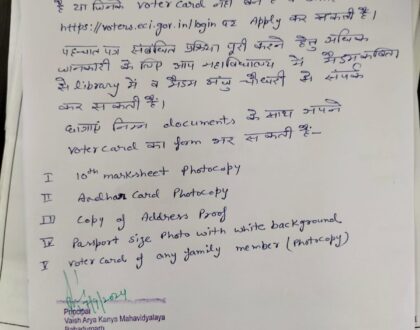 है या जिनके voter card नहीं बने है व
https://voters.eci.gov.in/login पर Apply कर सकती है।
पहचान पत्र संबंधित प्रक्रिया पूरी करने हेतु अधिक
जानकारी के लिए आप महाविद्यालय में मैडम कविता
से library में व मैडम मंजु चौधरी से संपर्क
कर सकती है।
छात्राएं निम्न documents के साथ अपने
voter card का form भर सकती है:-
I 10th marksheet Photocopy
II Aadhar Card Photocopy
III Copy of Address Proof
IV Passport size Photo with white background
V Voter Card of any family member (Photocopy)
Principal
Vaish Arya Kanya Mahavidyalaya
Bahadurgarh